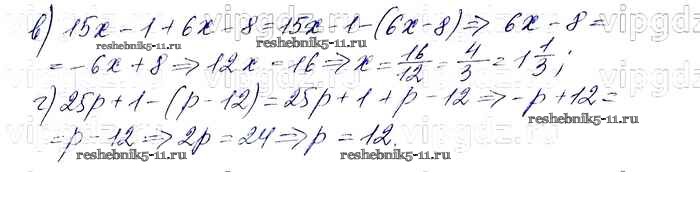 в) 15x - 1 + 6x - 8 = 15x - 1 - (6x - 8) ⇒ 6x - 8 =
= -6x + 8 ⇒ 12x = 16 ⇒ x = 16/12 = 4/3 = 1 1/3;
г) 25p + 1 - (p - 12) = 25p + 1 + p - 12 ⇒ -p + 12 =
= p - 12 ⇒ 2p = 24 ⇒ p = 12.
reshebnik5-11.ru
reshebnik5-11.ru
reshebnik5-11.ru
reshebnik5-11.ru
vipgdz.ru